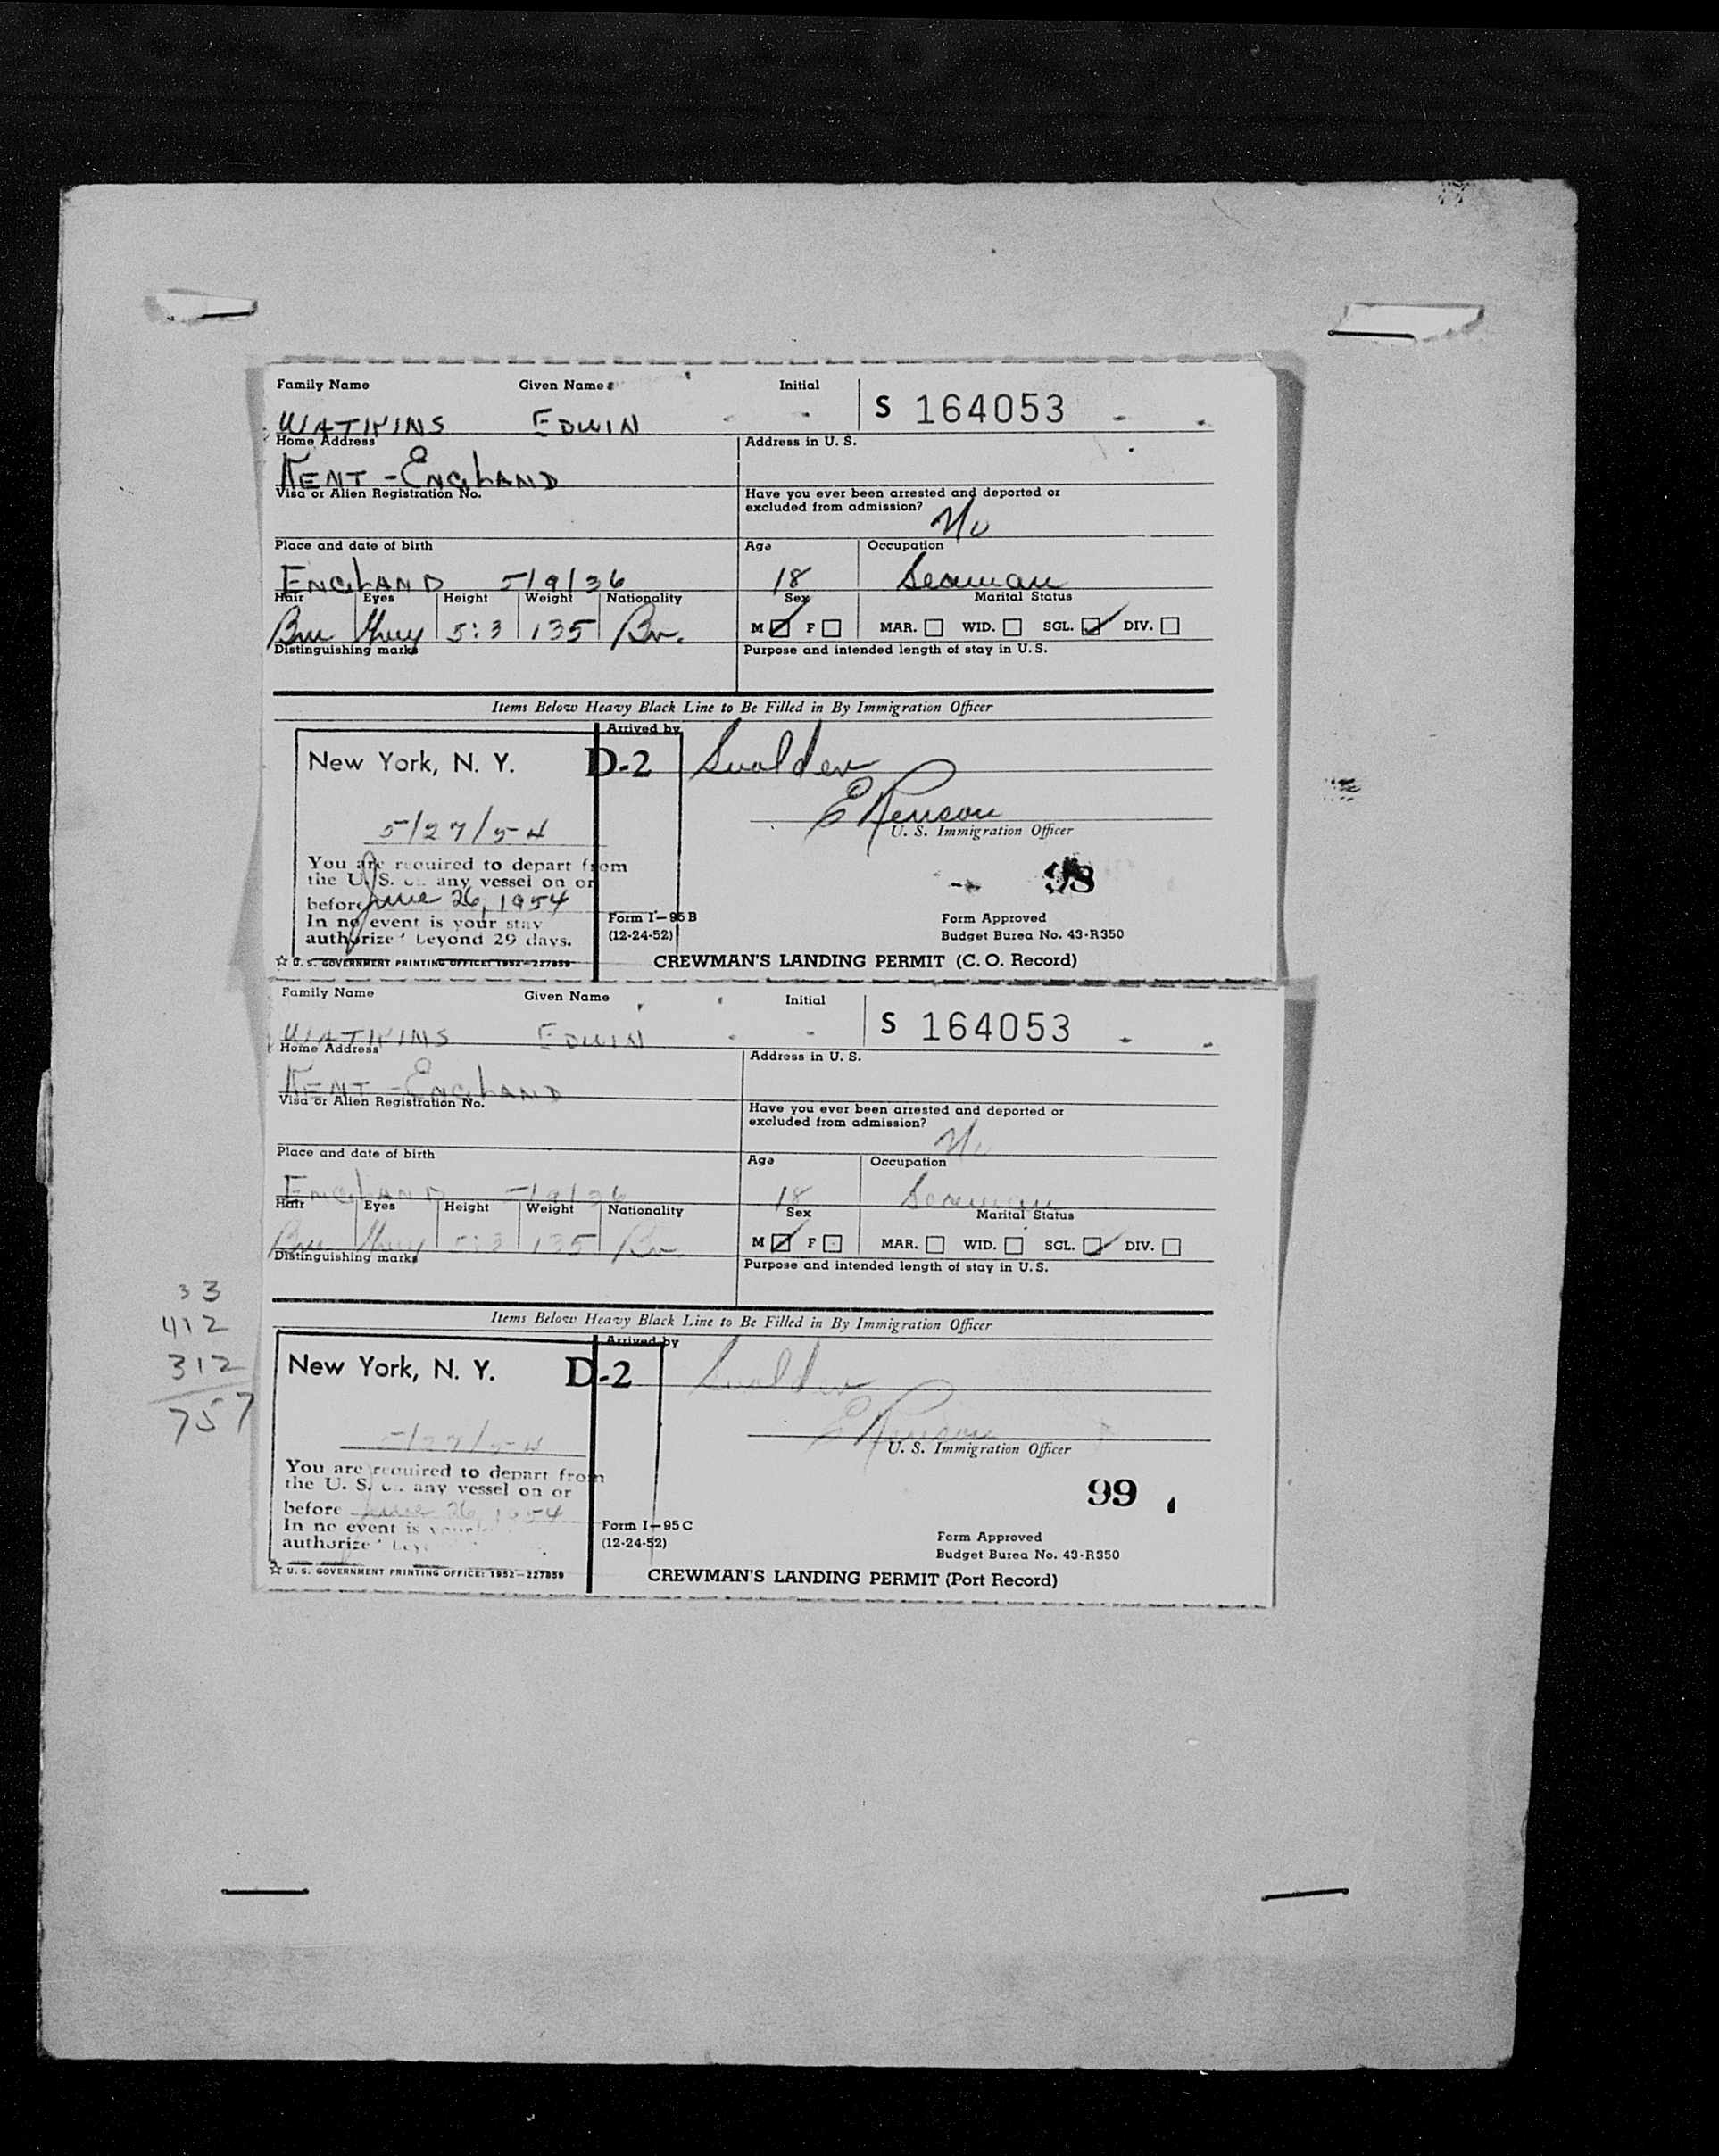 Family Name Given Name Initial
S 164053
WATKINS EDWIN
Home Address Address in U. S.
KENT - ENGLAND
Visa or Alien Registration No. Have you ever been arrested and deported or
excluded from admission?
No
Place and date of birth Age Occupation
ENGLAND 5/9/36 18 Seaman
Hair Eyes Height Weight Nationality Sex Marital Status
Brn Grey 5:3 135 Br. M F MAR. WID. SGL. DIV.
Distinguishing marks Purpose and intended length of stay in U.S.
Items Below Heavy Black Line to Be Filled in By Immigration Officer
Arrived by
New York, N. Y. D-2
5/27/54
U. S. Immigration Officer
You are required to depart from
the U. S. on any vessel on or
98
before June 26, 1954
In no event is your stay Form I-95 B Form Approved
authorized beyond 29 days. (12-24-52) Budget Burea No. 43-R350
☆ U. S. GOVERNMENT PRINTING OFFICE: 1952-227859 CREWMAN'S LANDING PERMIT (C. O. Record)
Family Name Given Name Initial
S 164053
WATKINS EDWIN
Home Address Address in U. S.
KENT - ENGLAND
Visa or Alien Registration No. Have you ever been arrested and deported or
excluded from admission?
No
Place and date of birth Age Occupation
ENGLAND 5/9/36 18 Seaman
Hair Eyes Height Weight Nationality Sex Marital Status
Brn Grey 5:3 135 Br M F MAR. WID. SGL. DIV.
Distinguishing marks Purpose and intended length of stay in U.S.
33
412
312
757
Items Below Heavy Black Line to Be Filled in By Immigration Officer
Arrived by
New York, N. Y. D-2
5/27/54
U. S. Immigration Officer
You are required to depart from
the U. S. on any vessel on or
99
before June 26, 1954
In no event is your Form I-95 C Form Approved
authorized (12-24-52) Budget Burea No. 43-R350
☆ U. S. GOVERNMENT PRINTING OFFICE: 1952-227859 CREWMAN'S LANDING PERMIT (Port Record)